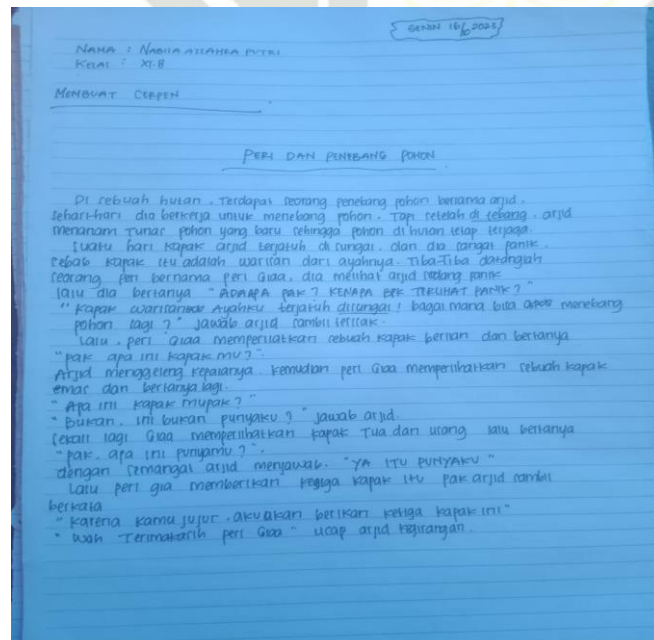 SENIN 16/10 2023
NAMA : NABILA AZZAHRA PUTRI
KELAS : XI.B
MEMBUAT CERPEN
PERI DAN PENEBANG POHON
Di sebuah hutan. Terdapat seorang penebang pohon bernama arjid.
sehari-hari dia berkerja untuk menebang pohon. Tapi setelah di tebang. arjid
menanam Tunas pohon yang baru sehingga pohon di hutan tetap terjaga.
Suatu hari kapak arjid terjatuh di sungai. dan dia sangat panik.
sebab kapak itu adalah warisan dari ayahnya. Tiba-Tiba datanglah
seorang peri bernama peri Giaa, dia melihat arjid sedang panik
lalu dia bertanya "ADA APA PAK? KENAPA BPK TERLIHAT PANIK?"
"Kapak warisan Ayahku terjatuh disungai! bagai mana bisa menebang
pohon lagi?" jawab arjid sambil terisak.
Lalu, peri Giaa memperliatkan sebuah kapak berlian dan bertanya
"pak apa ini kapak mu?"
Arjid menggeleng kepalanya. kemudian peri Giaa memperlihatkan sebuah kapak
emas dan bertanya lagi.
"Apa ini kapak mu pak?"
"Bukan. ini bukan punyaku?" jawab arjid.
sekali lagi Giaa memperlihatkan kapak Tua dan usang lalu bertanya
"pak. apa ini punyamu?".
dengan semangat arjid menjawab. "YA ITU PUNYAKU"
Lalu peri gia memberikan ketiga kapak itu pak arjid sambil
berkata
"karena kamu jujur. aku akan berikan ketiga kapak ini"
"wah Terimakasih peri Giaa" ucap arjid kegirangan.